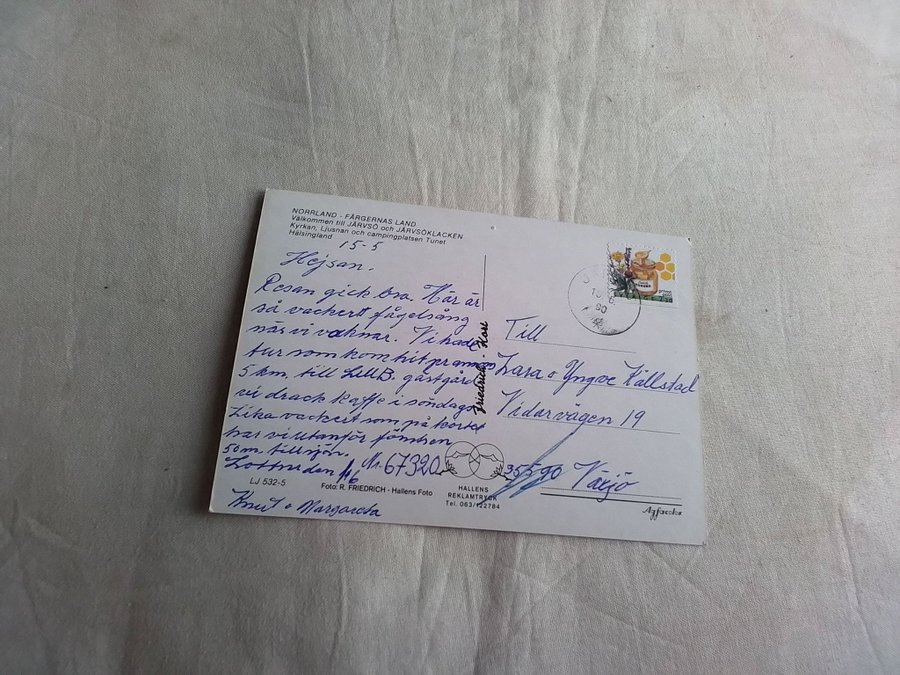 NORRLAND - FÄRGERNAS LAND
Välkommen till JÄRVSÖ och JÄRVSÖKLACKEN
Kyrkan, Ljusnan och campingplatsen Tunet
Hälsingland
15-5
Hejsan.
Resan gick bra. Här är
så vackert fågelsång
när vi vaknar. Vi hade
tur som kom hit
5 km. till gästgård
vi drack kaffe i söndags
Lika vackert som på kortet
har vi utanför fönstren
50 m. till sjön.
Lottnr den 1/6 Nr. 67320
LJ 532-5
Foto: R. FRIEDRICH - Hallens Foto
Knut o Margareta
Friedrich - Kort
HALLENS
REKLAMTRYCK
Tel. 063/122784
90
Till
Zara o Yngve Källstad
Vidarvägen 19
35590 Växjö
Agfacolor